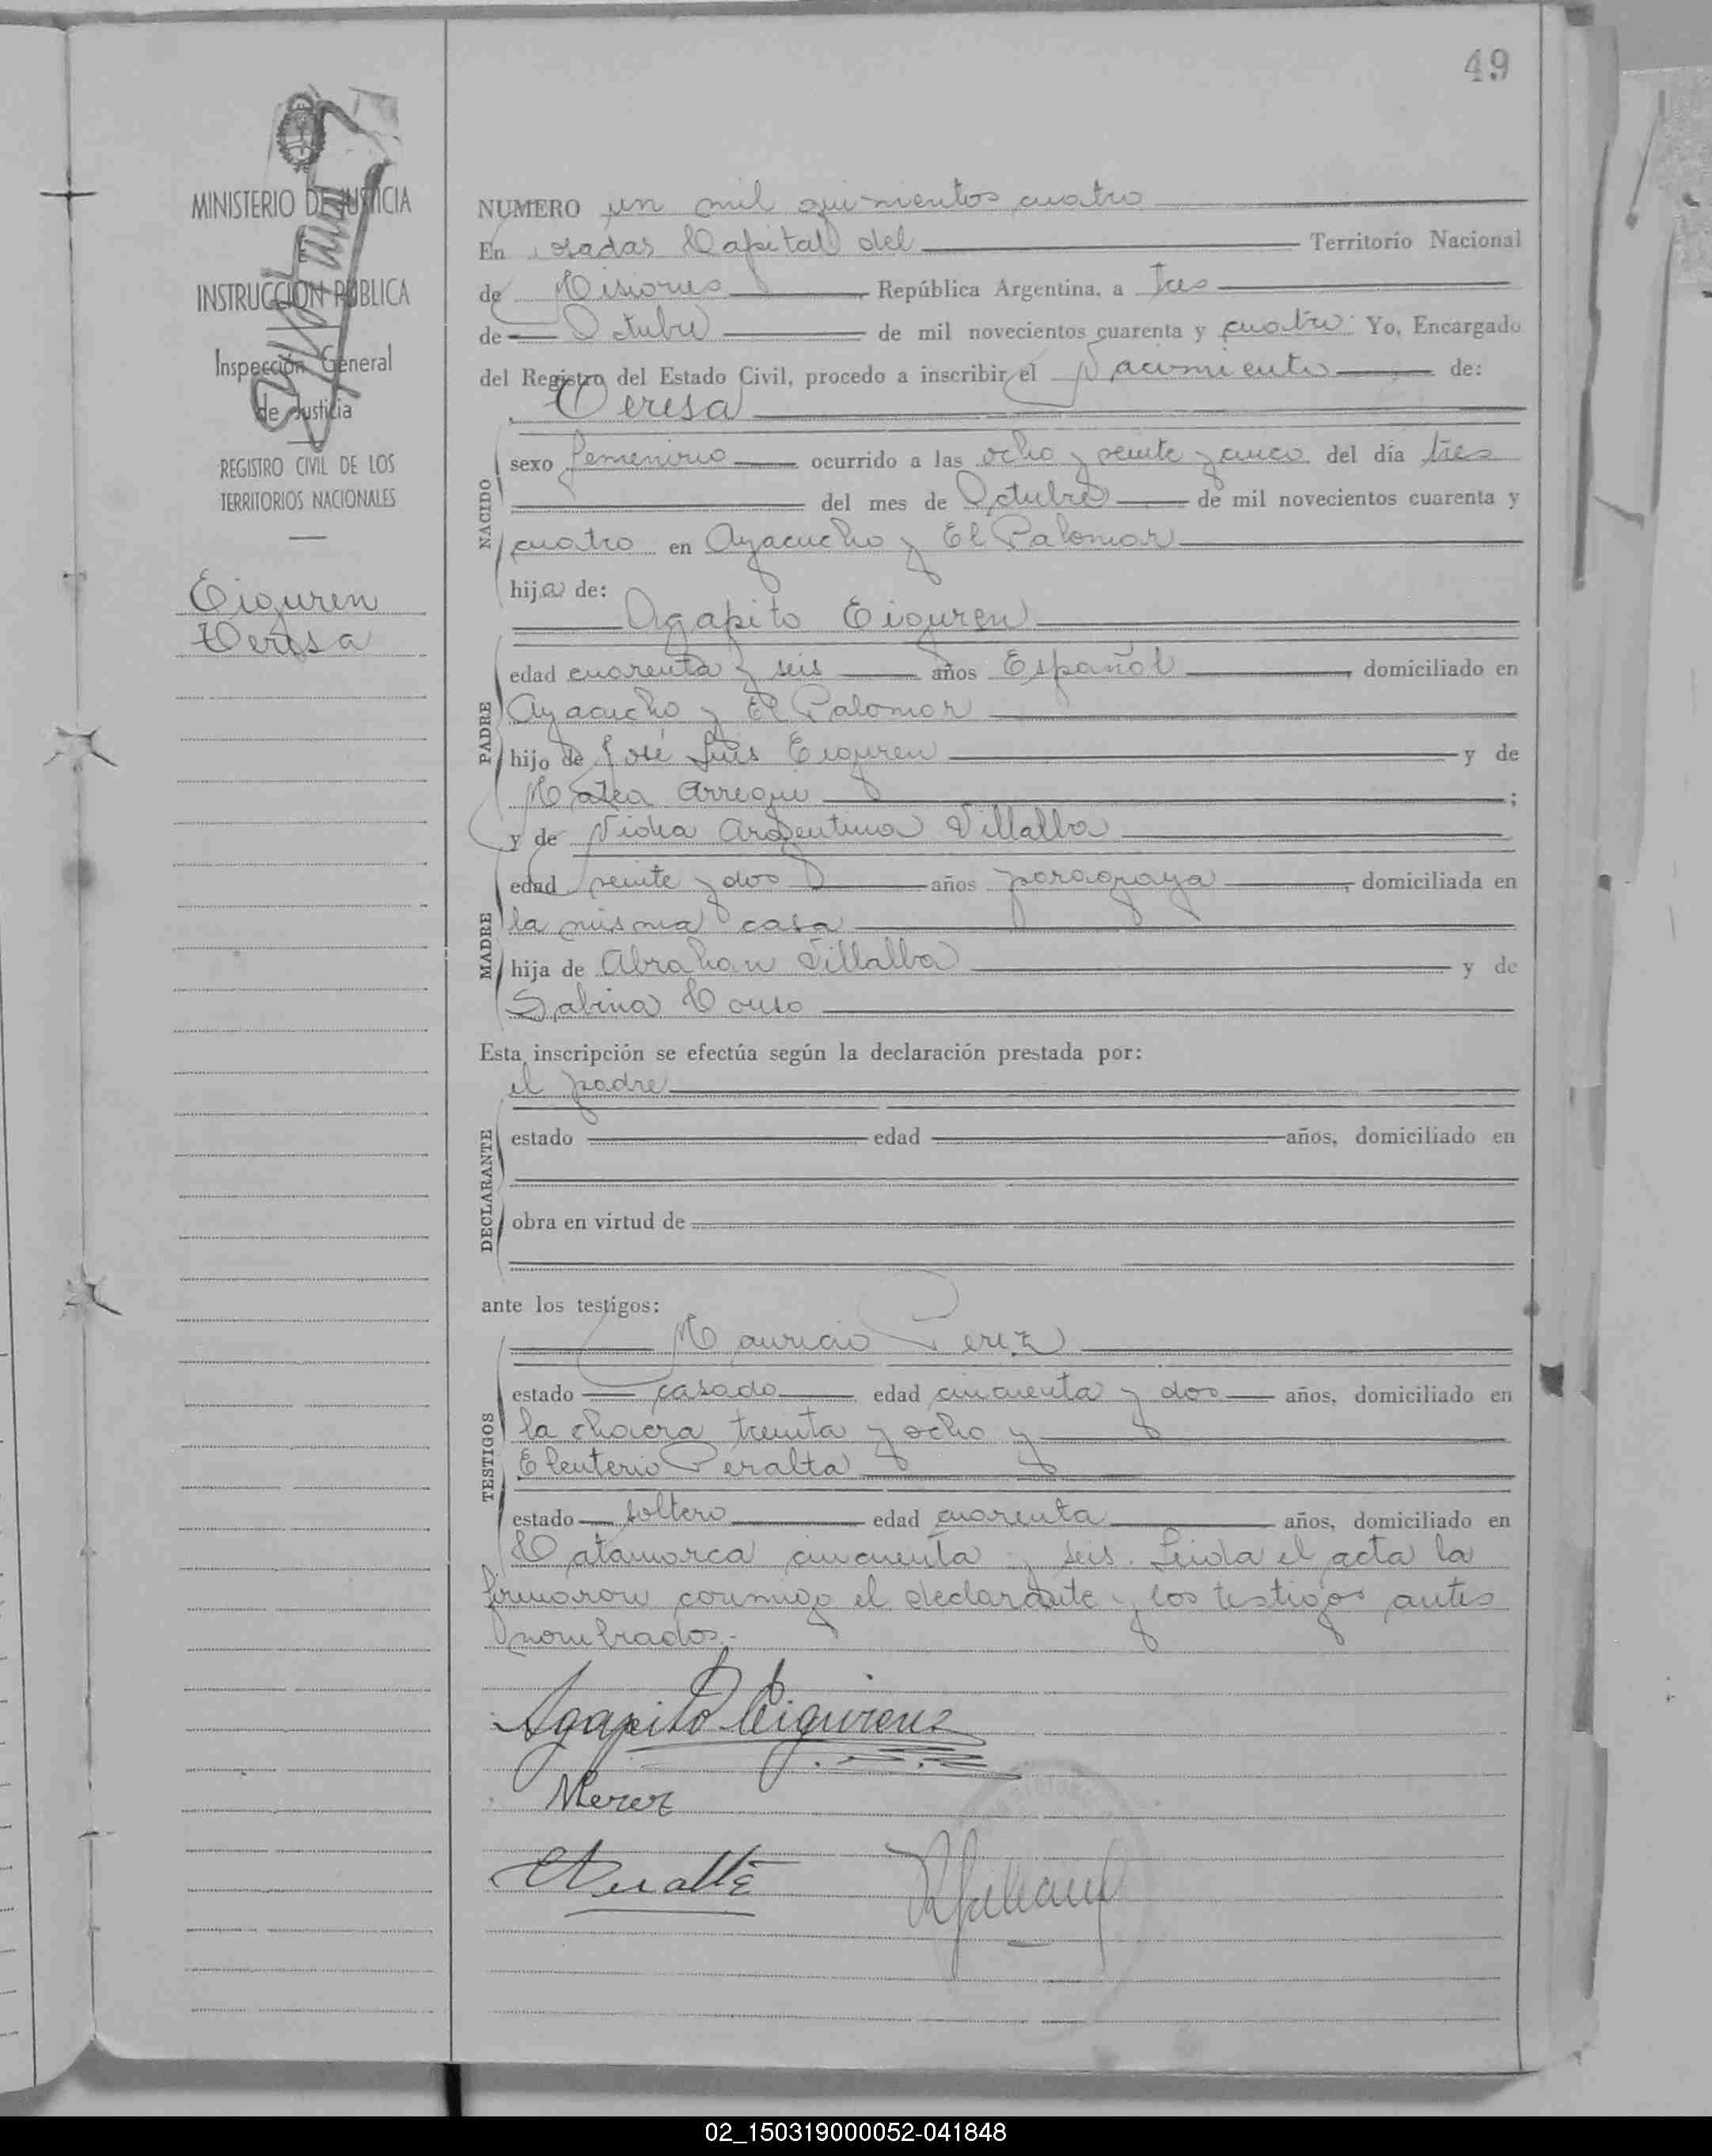 49
MINISTERIO DE JUSTICIA
INSTRUCCIÓN PÚBLICA
Inspección General
de Justicia
REGISTRO CIVIL DE LOS
TERRITORIOS NACIONALES
Eiguren
Teresa
NUMERO un mil quinientos cuatro
En Posadas Capital del Territorio Nacional
de Misiones República Argentina, a tres
de Octubre de mil novecientos cuarenta y cuatro Yo, Encargado
del Registro del Estado Civil, procedo a inscribir el Nacimiento de:
Teresa
NACIDO
sexo femenino ocurrido a las ocho y veinte y cinco del día tres
del mes de Octubre de mil novecientos cuarenta y
cuatro en Ayacucho y El Palomar
hija de:
Agapito Eiguren
PADRE
edad cuarenta y seis años Español, domiciliado en
Ayacucho y El Palomar
hijo de José Luis Eiguren y de
Matea Arregui;
y de Vidia Argentina Villalba
MADRE
edad veinte y dos años paraguaya, domiciliada en
la misma casa
hija de Abrahan Villalba y de
Sabina Couso
Esta inscripción se efectúa según la declaración prestada por:
el padre
DECLARANTE
estado edad años, domiciliado en
obra en virtud de
ante los testigos:
Mauricio Perez
TESTIGOS
estado casado edad cincuenta y dos años, domiciliado en
la chacra treinta y ocho y
Eleuterio Peralta
estado soltero edad cuarenta años, domiciliado en
Catamarca cincuenta y seis. Leida el acta la
firmaron conmigo el declarante y los testigos antes
nombrados.-
Agapito Eigurenz
MPerez
EPeralta
02_150319000052-041848